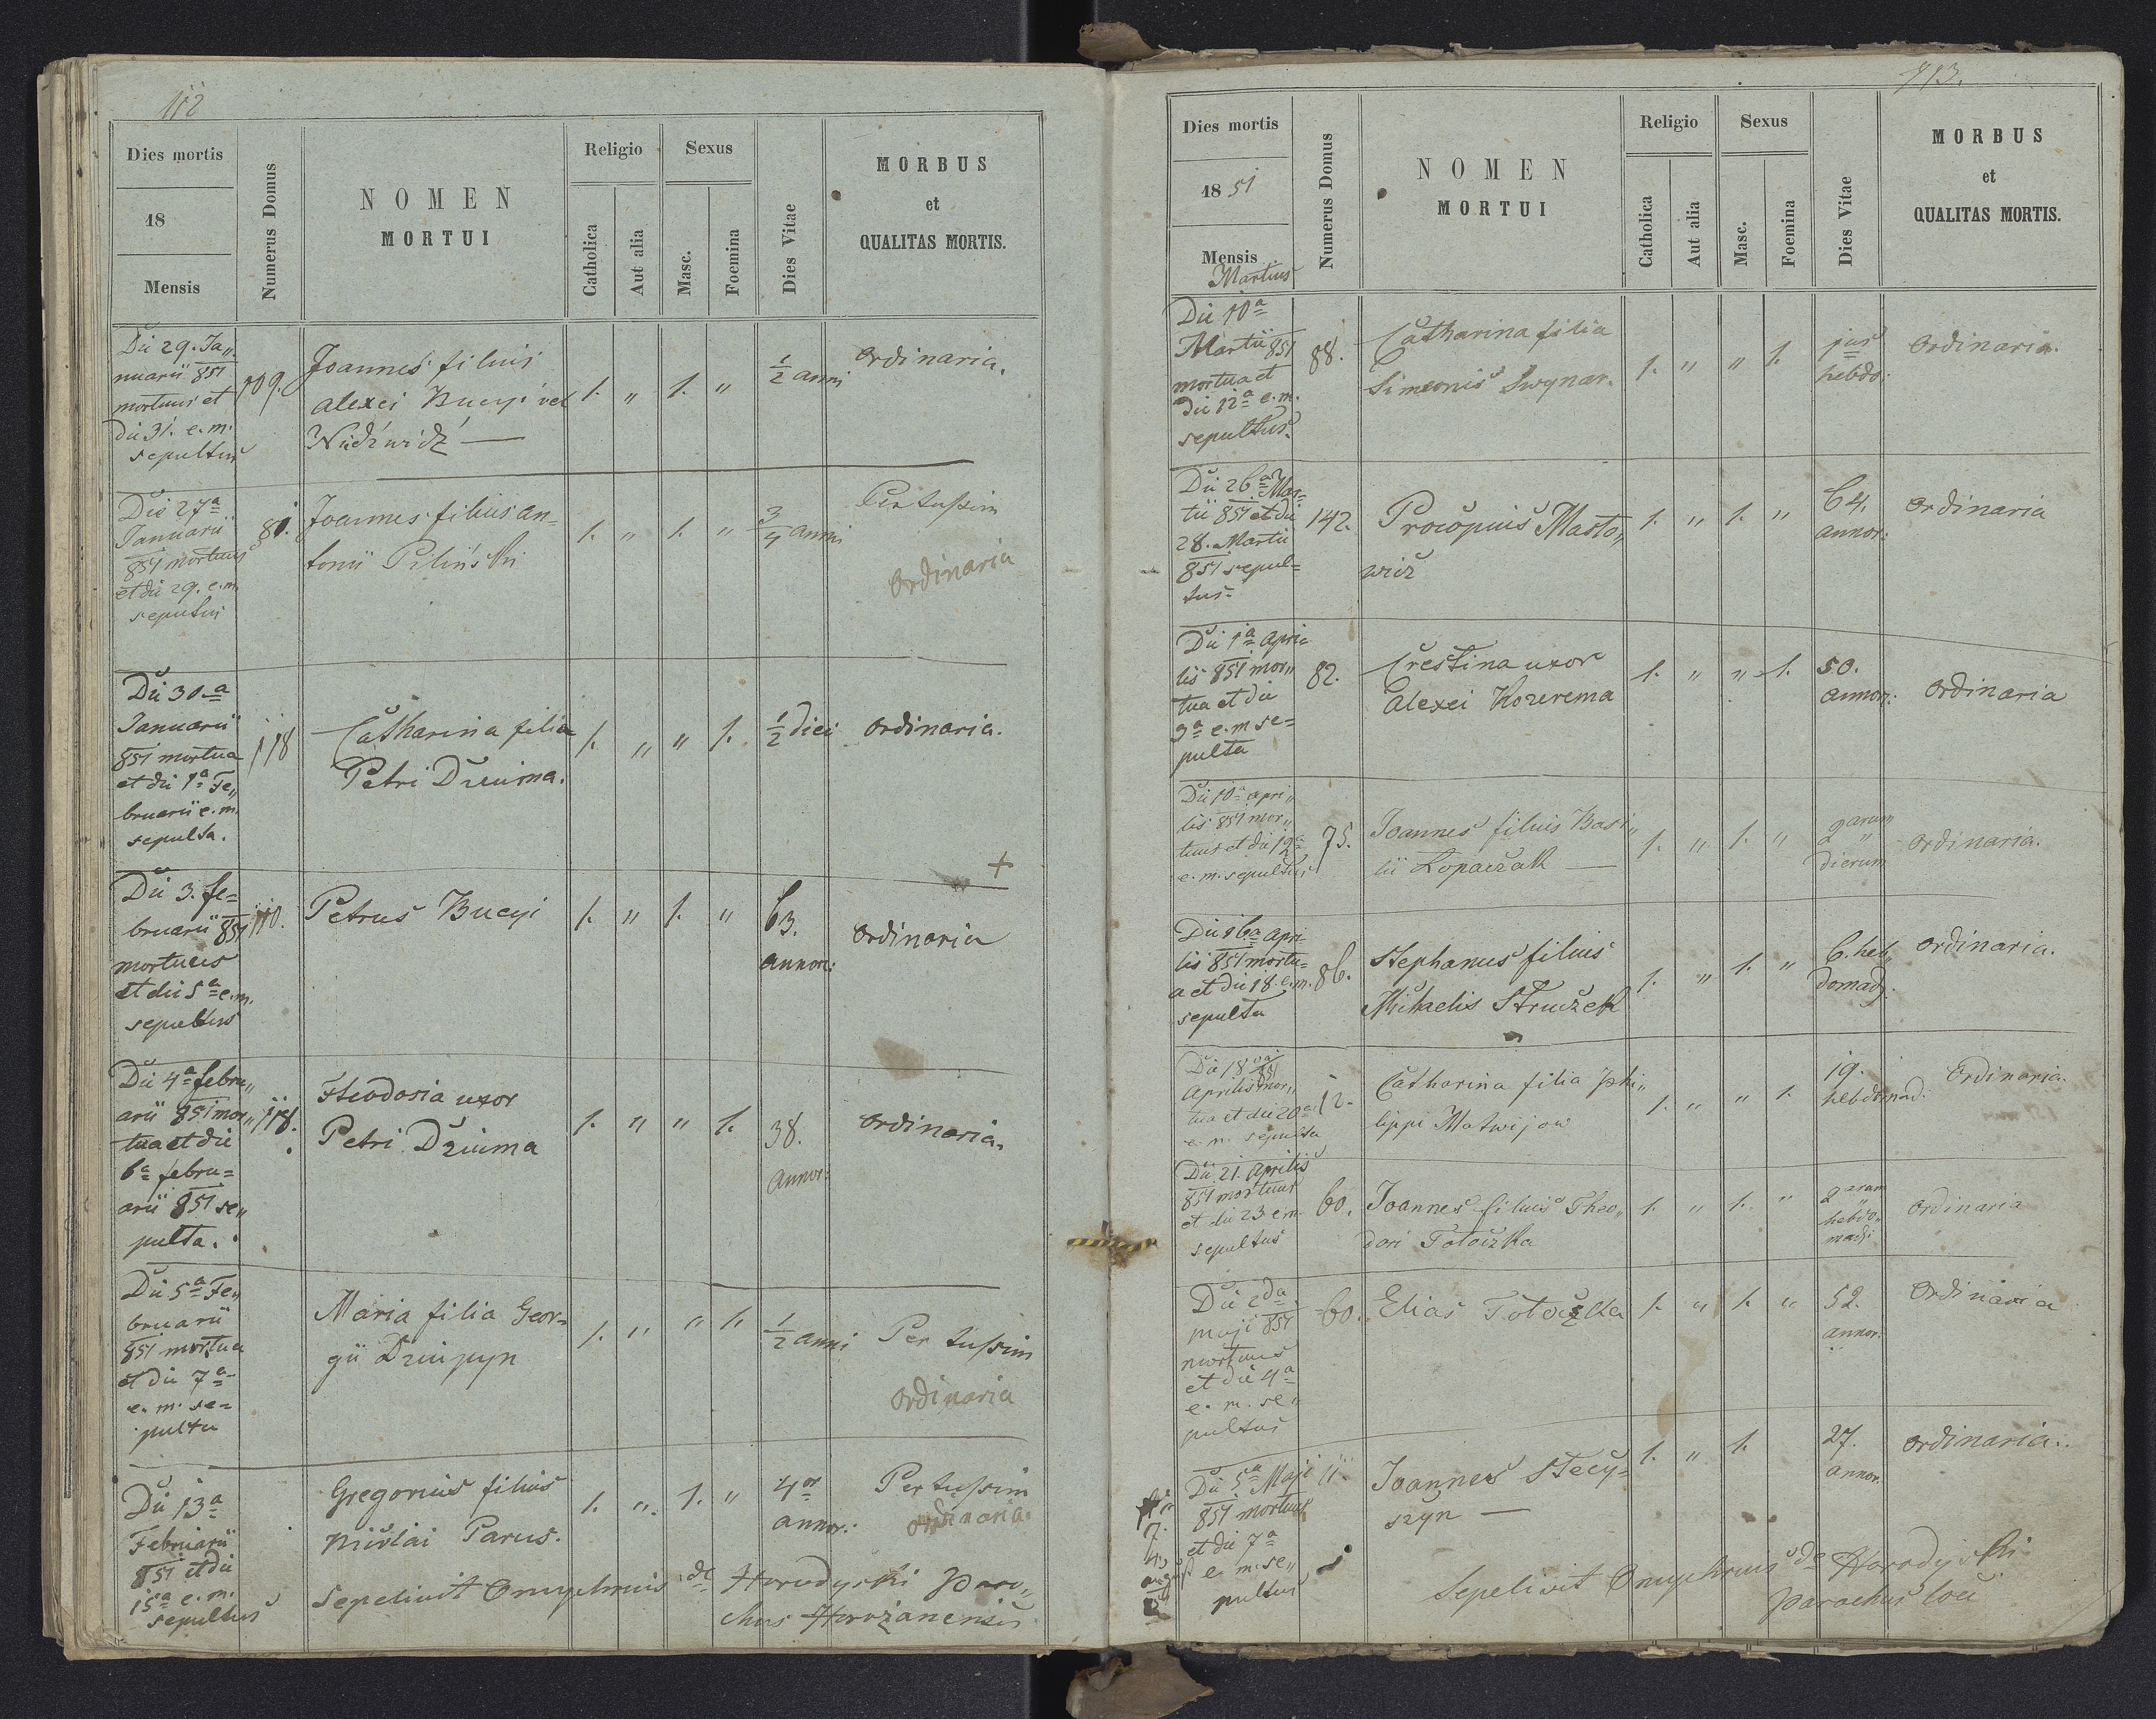 112
Dies mortis
18
Mensis
Numerus Domus
NOMEN
MORTUI
Religio
Catholica
Aut alia
Sexus
Masc.
Foemina
Dies Vitae
MORBUS
et
QUALITAS MORTIS.
Die 29. Ja„
nuarii 851
mortuus et
die 31. e. m.
sepultus
109.
Joannes filius
Alexei Bucyi vel
Nidźwidź —
1. „ 1. „
1/2 anni
Ordinaria.
Die 27a
Januarii
851 mortuus
et die 29. e. m.
sepultus
81.
Joannes filius An=
tonii Piliński
1. „ 1. „
3/4 anni
Per tussim
Ordinaria
Die 30.a
Januarii
851 mortua
et die 1a Fe„
bruarii e. m.
sepulta.
118
Catharina filia
Petri Dziuma.
1. „ „ 1.
1/2 diei
Ordinaria.
+
Die 3. fe=
bruarii 851
mortuus
et die 5a e. m.
sepultus
110.
Petrus Bucyi
1. „ 1. „
63.
annor:
Ordinaria
Die 4a febru„
arii 851 mor„
tua et die
6a febru=
arii 851 se„
pulta.
118.
Theodosia uxor
Petri Dziuma
1. „ „ 1.
38.
Annor:
Ordinaria.
Die 5a Fe„
bruarii
851 mortua
et die 7a
e. m. se=
pulta
Maria filia Geor=
gii Dziupyn
1. „ „ 1.
1/2 anni
Per tussim
Ordinaria
Die 13a
Februarii
851 et die
15a e. m.
sepultus
Gregorius filius
Nicolai Parus.
1. „ 1. „
4or
annor:
Per tussim
ordinaria.
Sepelivit Onuphrius de Horodyski Paro„
chus Horożanensis
113.
Dies mortis
18 51
Mensis
Martius
Numerus Domus
NOMEN
MORTUI
Religio
Catholica
Aut alia
Sexus
Masc.
Foemina
Dies Vitae
MORBUS
et
QUALITAS MORTIS.
Die 10a
Martii 851
mortua et
die 12a e. m.
sepultus.
88.
Catharina filia
Simeonis Swynar.
1. „ „ 1.
hebdo:
Ordinaria.
Die 26a Mar=
tii 851 et die
28. Martii
851 sepul=
tus.
142.
Procopius Masto„
wicz
1. „ 1. „
64.
annor:
Ordinaria
Die 1a Apri
lis 851 mor„
tua et die
3a e. m se=
pulta
82.
Crestina uxor
Alexei Kozerema
1. „ „ 1.
50.
annor:
Ordinaria
Die 10a Apri„
lis 851 mor„
tuus et die 12a
e. m. sepultus
75.
Joannes filius Basi„
lii Łopaczak —
1. „ 1. „
2arum
dierum
Ordinaria.
Die 16a Apri-
lis 851 mortu=
a et die 18. e. m.
sepulta
86.
Stephanus filius
Michaelis Struczek
1. „ 1. „
6. heb„
domad.
Ordinaria.
Die 18va
851
Aprilis mor„
tua et die 20a
e. m. sepulta
12.
Catharina filia Phi„
lippi Matwijow
1. „ „ 1.
19.
hebdomad:
Ordinaria.
Die 21. Aprilis
851 mortuus
et die 23 e m.
sepultus
60.
Joannes filius Theo„
dori Totoczka
1. „ 1. „
2arum
hebdo„
madi
Ordinaria
Die 2da
Maji 851
mortuus
et die 4a
e. m. se„
pultus
60.
Elias Totoczka
1. „ 1. „
52.
annor.
Ordinaria
Die 5a Maji
851 mortuus
et die 7a
e. m. se„
pultus
11.
Joannes Stecy=
szyn —
1. „ 1.
27.
annor.
Ordinaria.
7.
august
Sepelivit Onuphrius de Horodyski
Parochus loci